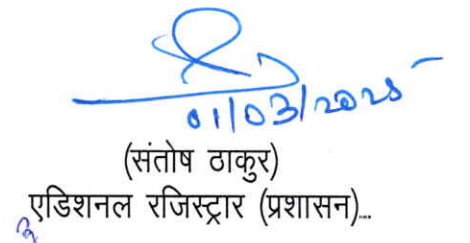 01/03/2025
(संतोष ठाकुर)
एडिशनल रजिस्ट्रार (प्रशासन)...